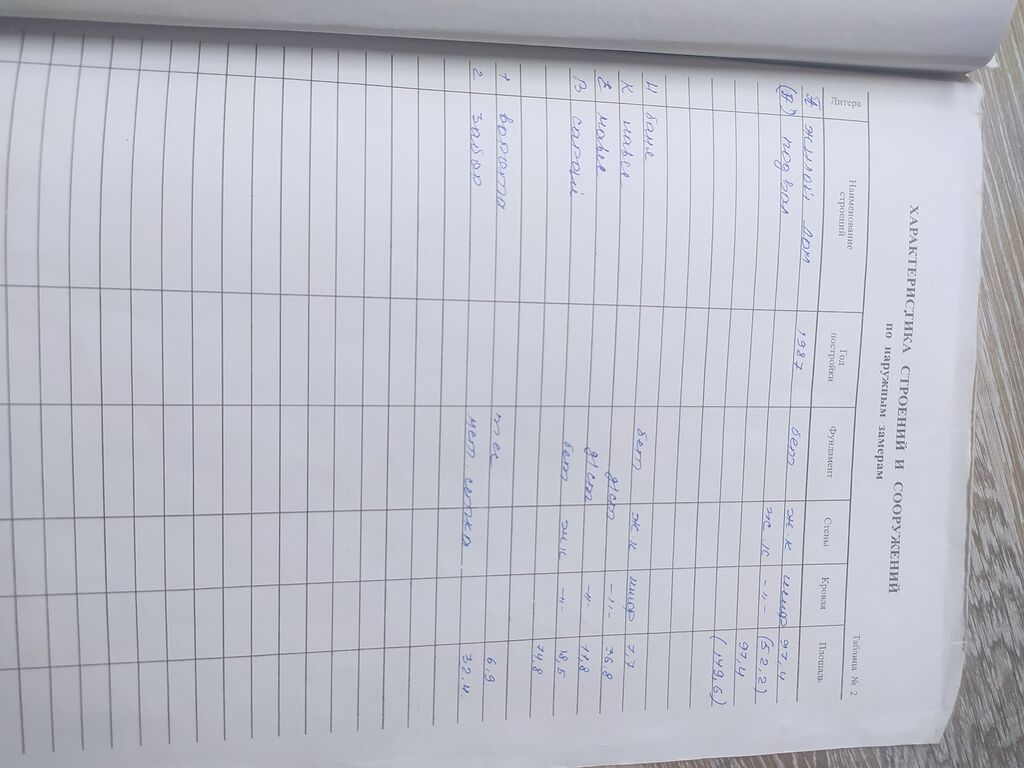 Таблица № 2
ХАРАКТЕРИСТИКА СТРОЕНИЙ И СООРУЖЕНИЙ
по наружным замерам
Литера Наименование строений Год постройки Фундамент Стены Кровля Площадь
жилой дом 1987 бет ж.к шиф 97,4
подвал ж.к -"- (52,2)
97,4
(149,6)
Н баня бет ж.к шиф 7.7
К навес д/ст -"- 36.8
навес д/ст -"- 11,8
В сарай бет жк -"- 18,5
74,8
1 ворота тес 6,9
2 забор мет. сетка 32.